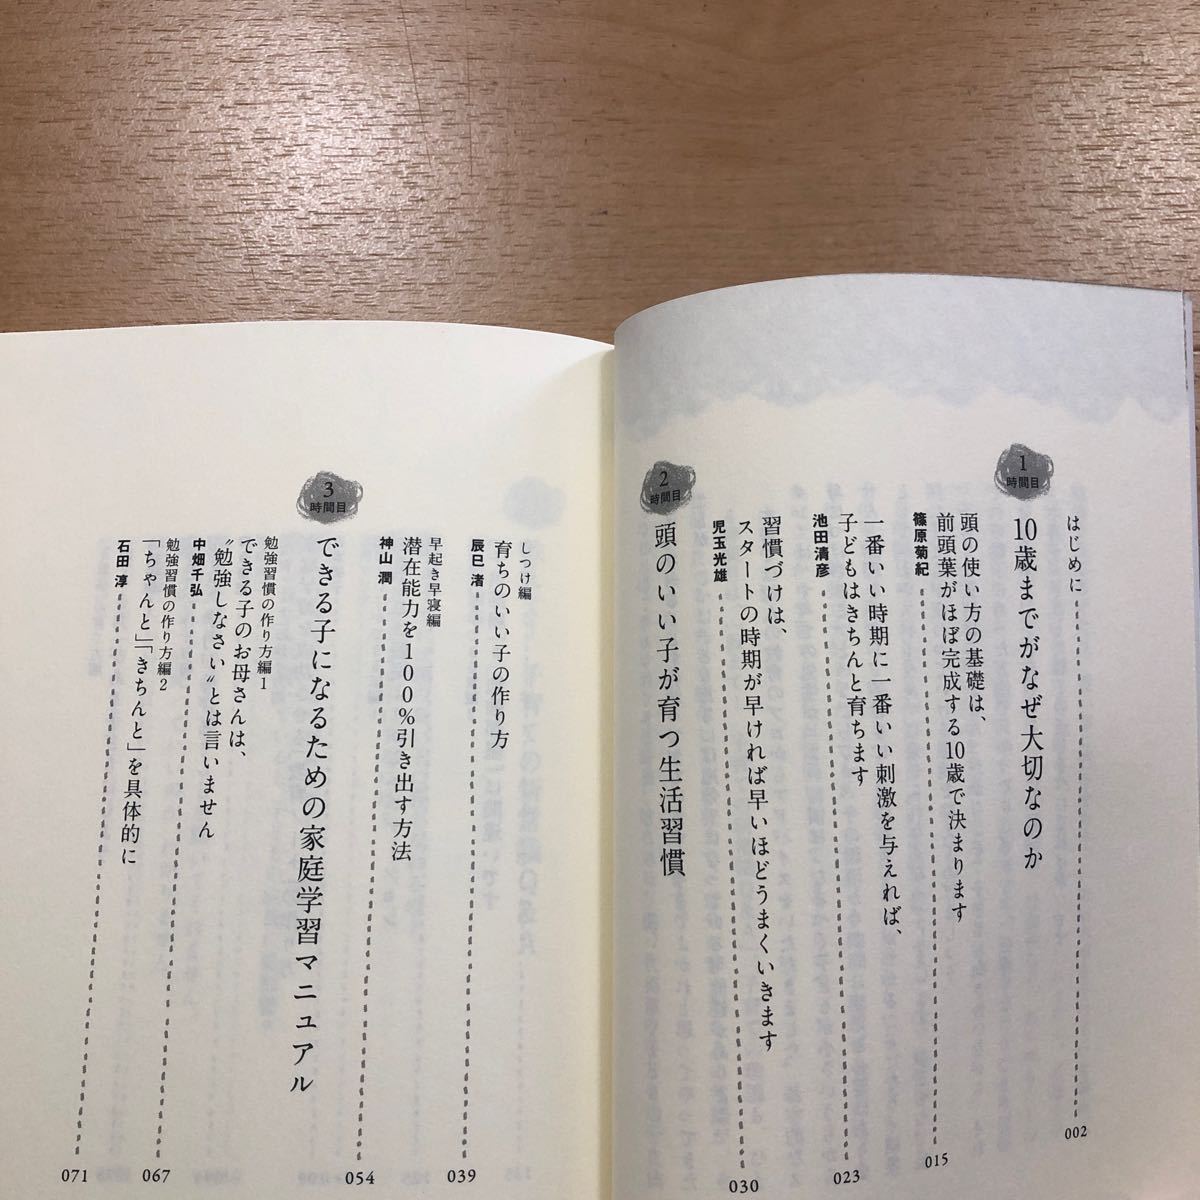 はじめに
002
1
時間目
10歳までがなぜ大切なのか
頭の使い方の基礎は、
前頭葉がほぼ完成する10歳で決まります
篠原菊紀
015
一番いい時期に一番いい刺激を与えれば、
子どもはきちんと育ちます
池田清彦
023
習慣づけは、
スタートの時期が早ければ早いほどうまくいきます
児玉光雄
030
2
時間目
頭のいい子が育つ生活習慣
しつけ編
育ちのいい子の作り方
辰巳 渚
039
早起き早寝編
潜在能力を100%引き出す方法
神山 潤
054
3
時間目
できる子になるための家庭学習マニュアル
勉強習慣の作り方編1
できる子のお母さんは、
〝勉強しなさい〟とは言いません
中畑千弘
067
勉強習慣の作り方編2
「ちゃんと」「きちんと」を具体的に
石田 淳
071